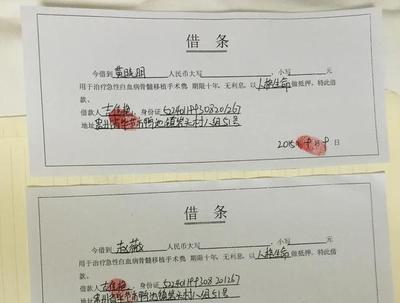 借 条
今借到 黄晓明 人民币大写 小写 元
用于治疗急性白血病骨髓移植手术费, 期限十年, 无利息, 以 人格生命 做抵押, 特此借
款。
借款人 身份证 522401199308201267
地址 贵州省毕节市鸭池镇 村八组51号
2015年 月 日
借 条
今借到 赵薇 人民币大写 小写 元
用于治疗急性白血病骨髓移植手术费, 期限十年, 无利息, 以 人格生命 做抵押, 特此借
款。
借款人 身份证 522401199308201267
地址 贵州省毕节市鸭池镇 村八组51号